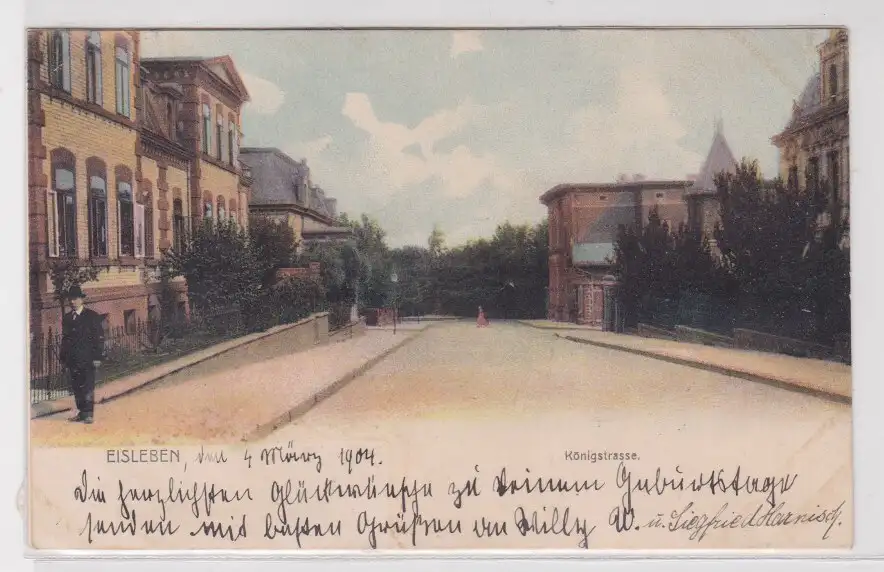 EISLEBEN, den 4 März 1904.
Königstrasse.
Die herzlichsten Glückwünsche zu Deinem Geburtstage
senden mit besten Grüßen an Willy W. u. Siegfried Harnisch.